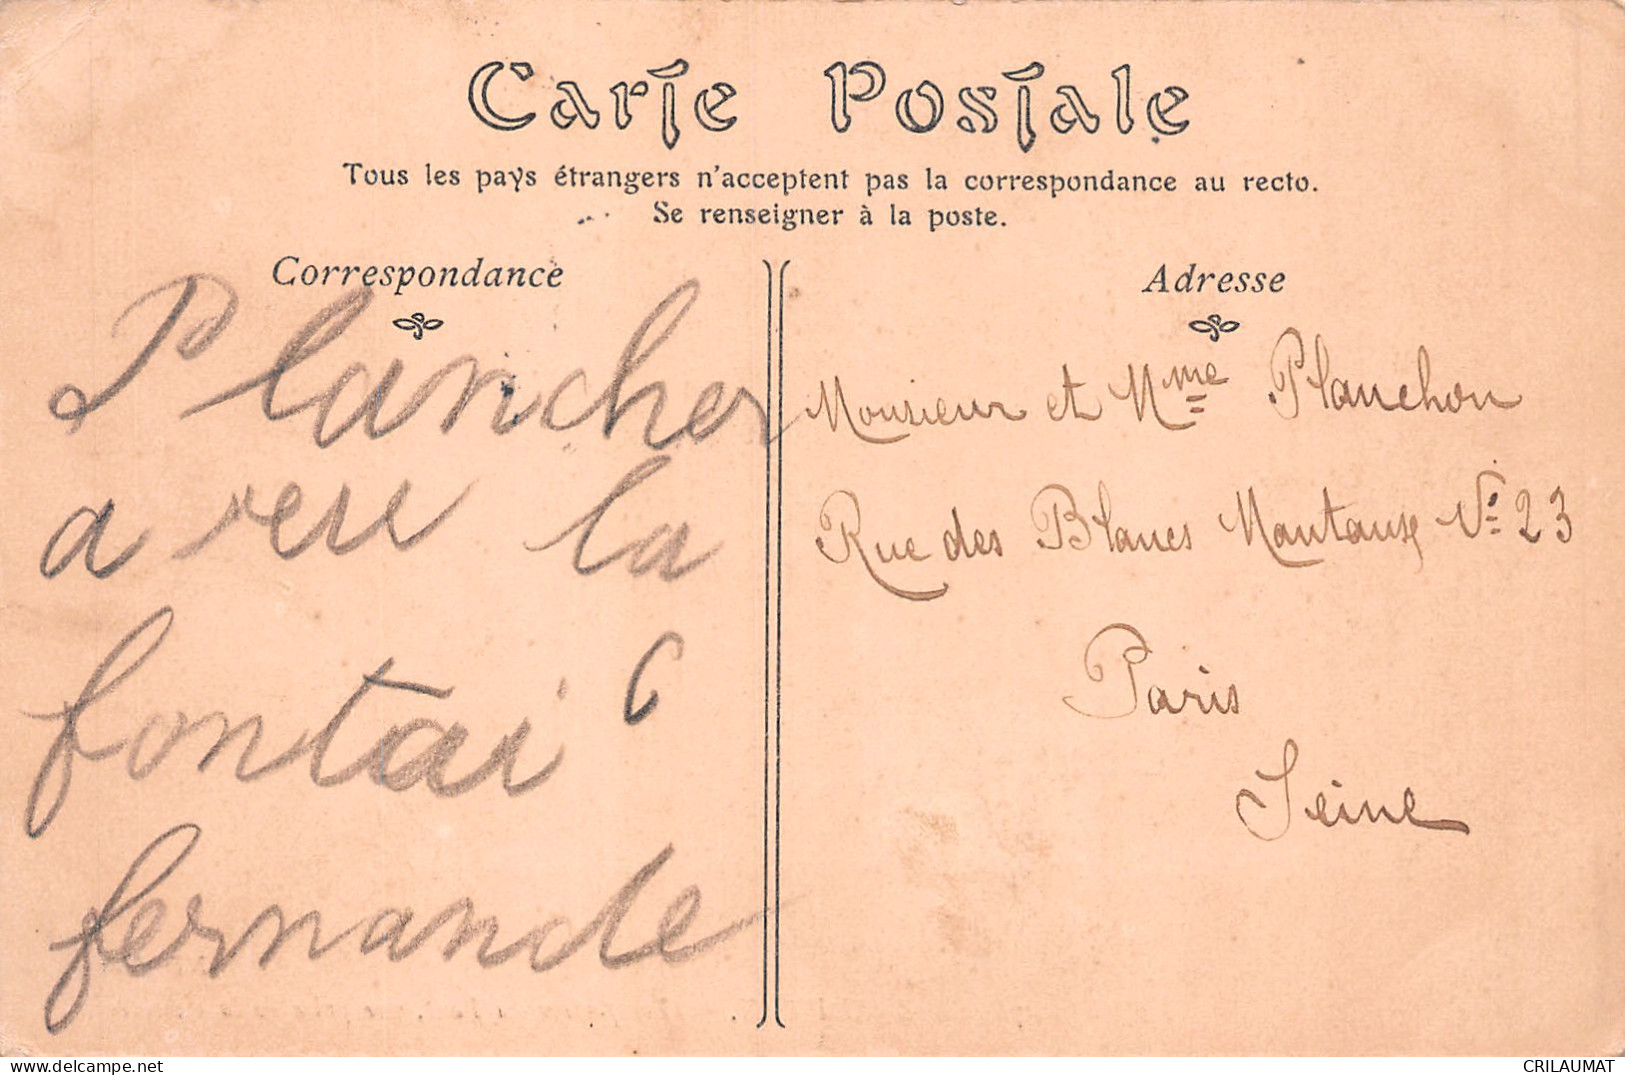 Carte Postale
Tous les pays étrangers n'acceptent pas la correspondance au recto.
Se renseigner à la poste.
Correspondance
Plancher
a veu la
fontai
fernande
Adresse
Monsieur et Mme Planchon
Rue des Blancs Mantaux No 23
Paris
Seine
delcampe.net
CRILAUMAT